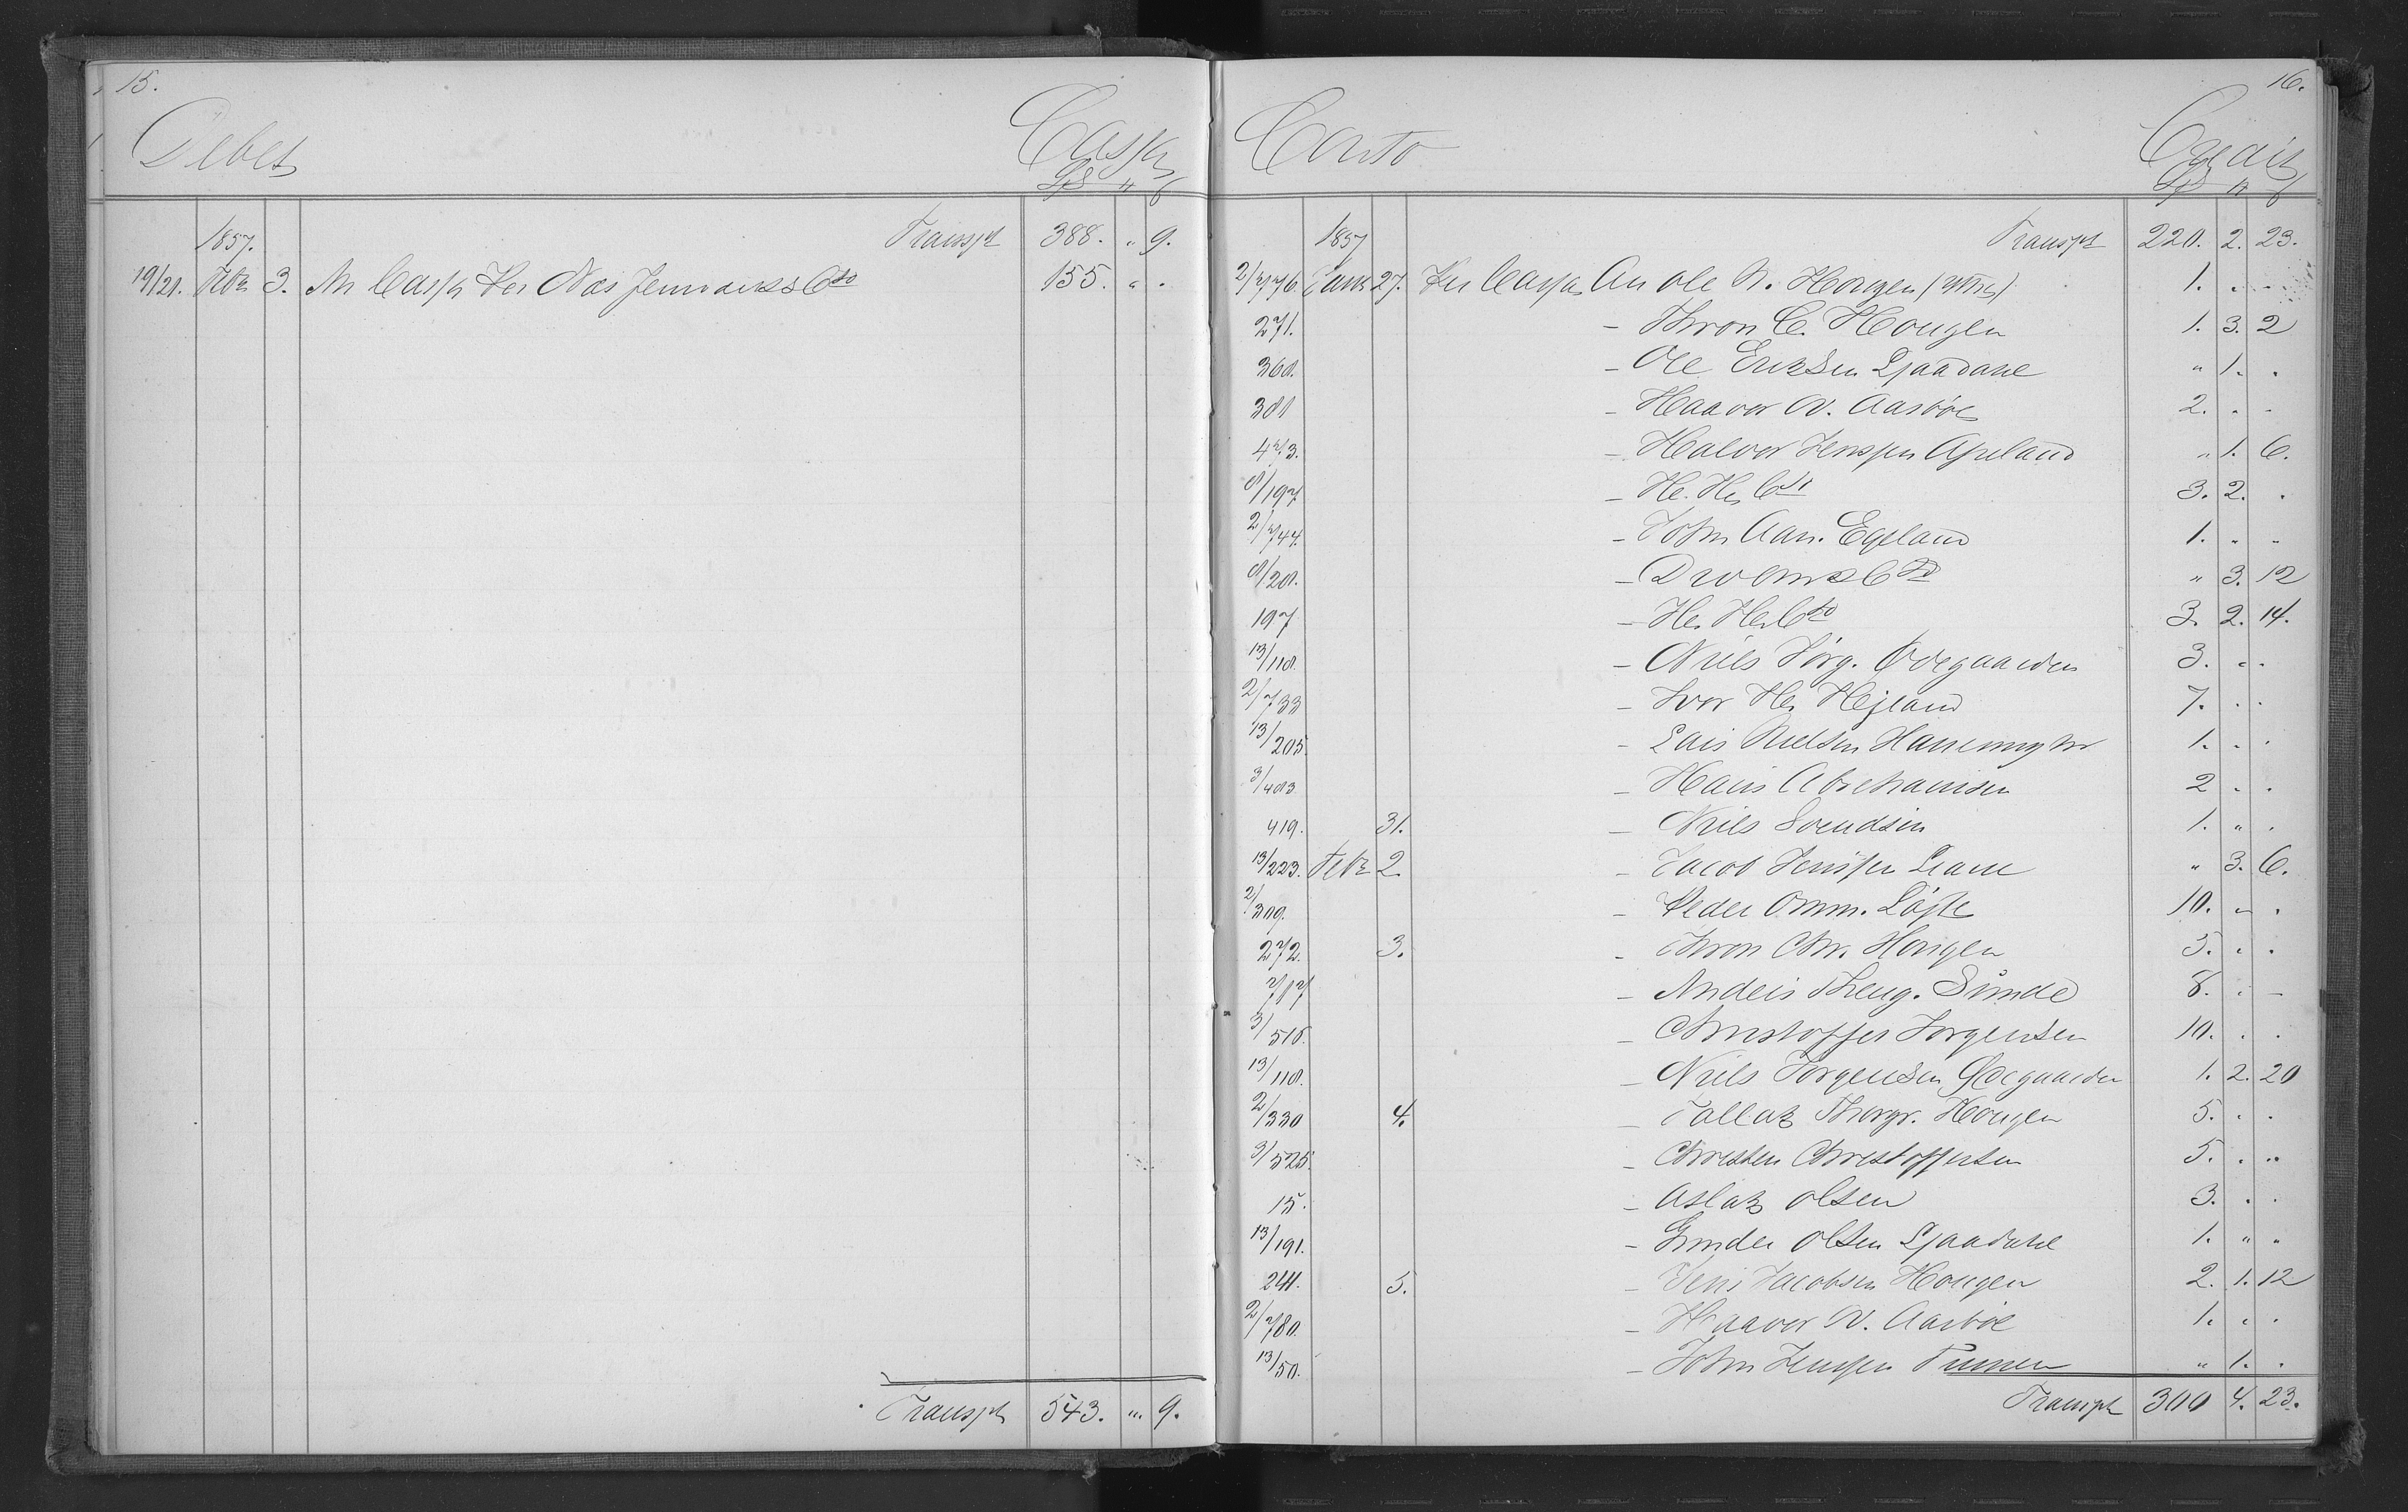 15.
Debet Cassa
Spd " ß
1857. Transpt 388. " 9.
19/21. Febr 3. An Cassa for Næs Jernværks Cto 155. " .
Transpt 543. " 9.
16.
Conto Credit
Spd " ß
1857 Transpt 220. 2. 23.
2/776. Janr 27. Per Cassa An Ole N. Hougen 1. . .
271. - Thron C. Hougen 1. 3. 2
360. - Ole Eriksen Ljaadahl " 1. .
381 - Haavor N. Aasböe 2. . .
473. - Halvor Jenssen Apeland " 1. 6.
8/197 - H. H. Cto 3. 2. .
2/744. - John Aan. Egeland 1. " "
8/20. - Cto " 3. 12
197 - H. H. Cto 3. 2. 14.
13/118. - Niels Jörg. Ödegaarden 3. . .
2/733 - Ivor H. Hejland 7. . .
13/205. - Lars Nielsen 1. . .
3/483 - Hans Abrahamsen 2 . .
419. 31. - Niels Svendsen 1. " .
13/223. Febr 2. - Jacob Jenssen Liane " 3. 6.
2/309. - Peder Omm. Löfte 10. " .
272. 3. - Thron Chr. Hougen 5. . .
717 - Anders Theug. Sunde 8. . -
3/515. - Christoffer Jörgensen 10. . .
13/118. - Niels Jörgensen Ödegaarden 1. 2. 20
2/330 4. - Tallak Thorgr. Hougen 5. . .
3/525. - Christen Christoffersen 5. . "
15. - Aslak Olsen 3. . .
13/191. - Gunder Olsen Ljaadahl 1. " "
241. 5. - Jens Jacobsen Hougen 2. 1. 12
2/780. - Haavor N. Aasböe 1. . .
13/50. - John Jenssen " 1. .
Transpt 300 4. 23.